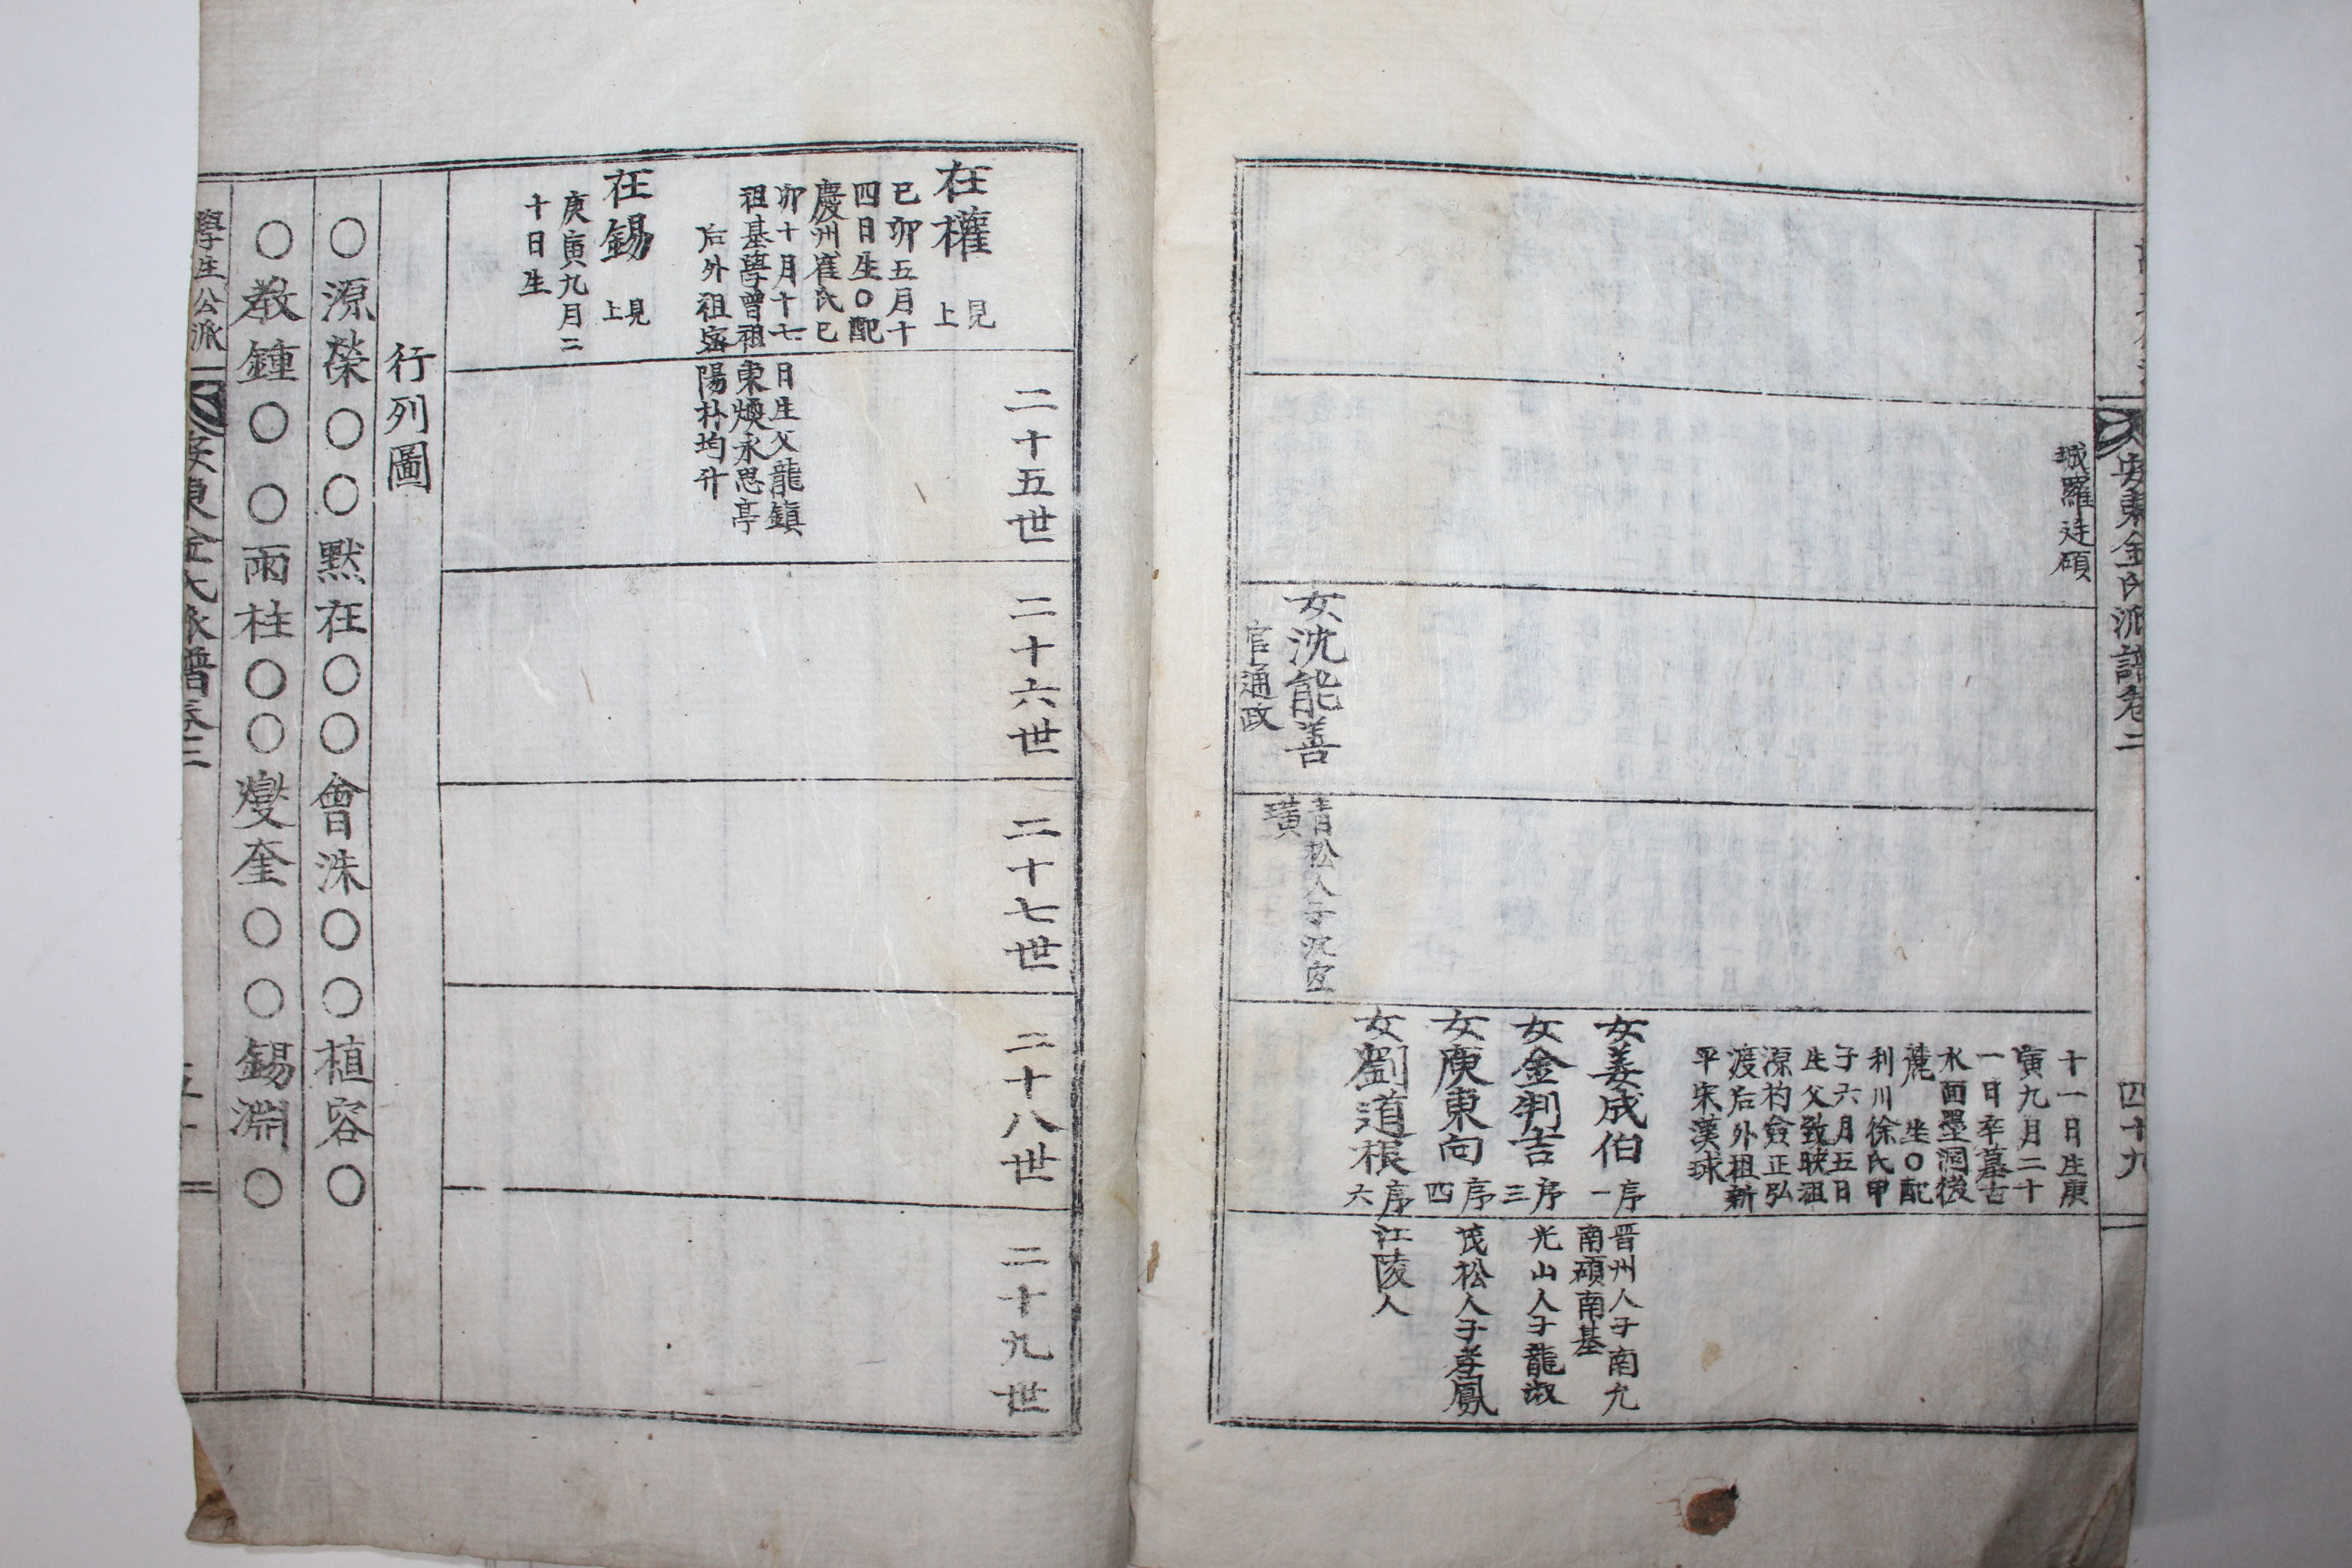 安東金氏派譜卷二
四十九
城羅廷碩
女沈能善
官通政
青松人子沢宜
璜
十一日生庚
寅九月二十
一日卒墓古
水面墨洞後
麓 坐〇配
利川徐氏甲
子六月五日
生父致駚祖
源杓僉正弘
渡后外祖新
平宋漢球
女姜成伯 序一
晋州人子南允
南碩南基
女金判吉 序三
光山人子龍淑
女庾東向 序四
茂松人子孝鳳
女劉道根 序六
江陵人
二十五世
二十六世
二十七世
二十八世
二十九世
在權 見上
己卯五月十
四日生〇配
慶州崔氏己
卯十月十七
日生父龍鎮
祖基學曾祖
東煥永思亭
后外祖密
陽朴均升
在錫 見上
庚寅九月二
十日生
行列圖
〇源榮〇〇默在〇〇會洙〇〇植容〇
〇敎鍾〇〇雨柱〇〇燮奎〇〇錫淵〇
學生公派
安東金氏派譜卷二